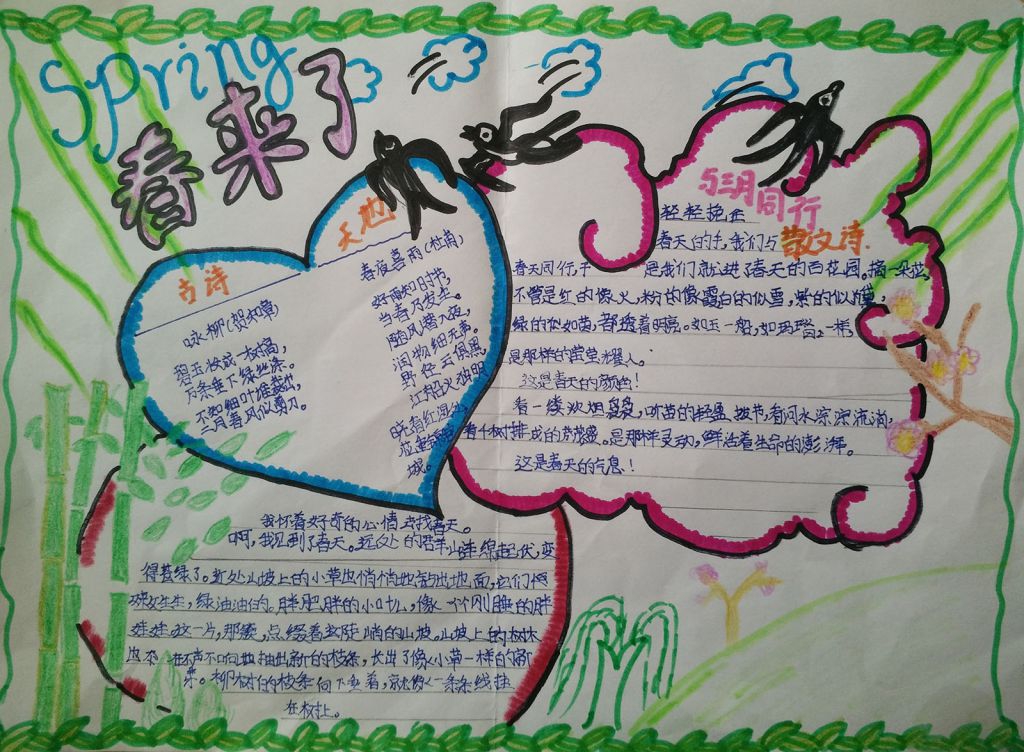 Spring
春来了
古诗
天地
咏柳(贺知章)
碧玉妆成一树高，
万条垂下绿丝条。
不知细叶谁裁出，
二月春风似剪刀。
春夜喜雨(杜甫)
好雨知时节，
当春乃发生。
随风潜入夜，
润物细无声。
野径云俱黑
江船火独明
晓看红湿处
花重锦官城。
与三月同行
散文诗
轻轻挽
春天的手，我们与
春天同行，于是我们就进了春天的百花园。摘一朵花，
不管是红的像火，粉的像霞白的似雪，紫的似
绿的 如茵，都透着明亮。如玉一般，如玛瑙一样，
是那样的莹莹耀人。
这是春天的颜色！
看一缕炊烟袅袅，听苗的轻盈拔节，看河水淙淙流淌，
看千树排成的 。是那样灵动，鲜活着生命的澎湃。
这是春天的气息！
我怀着好奇的心情去找春天。
啊，我见到了春天。远处的群山连绵起伏，变
得苍绿了。近处山坡上的小草也悄悄地钻出地面，它们
生生，绿油油的。胖肥胖的小叶儿，像一个个刚睡的胖
娃娃这一片，那簇，点缀着这陡峭的山坡。山坡上的树木
也不 不声不响地抽出新的枝条，长出了像小草一样的
来。柳树的枝条向下垂着，就像一条条线挂
在树上。